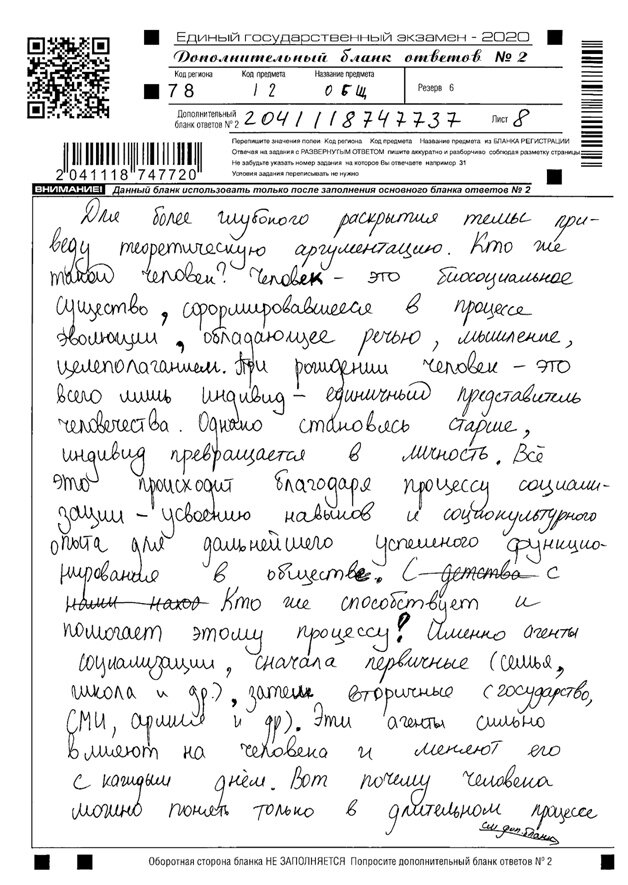 Единый государственный экзамен - 2020
Дополнительный бланк ответов № 2
Код региона Код предмета Название предмета
78 12 ОБЩ
Резерв 6
Дополнительный бланк ответов № 2 2041118747737 Лист 8
Перепишите значения полей Код региона Код предмета Название предмета из БЛАНКА РЕГИСТРАЦИИ
Отвечая на задания с РАЗВЕРНУТЫМ ОТВЕТОМ пишите аккуратно и разборчиво соблюдая разметку страницы
Не забудьте указать номер задания на которое Вы отвечаете например 31
Условия задания переписывать не нужно
2041118747720
ВНИМАНИЕ! Данный бланк использовать только после заполнения основного бланка ответов № 2
Для более глубокого раскрытия темы при-
веду теоретическую аргументацию. Кто же
такой человек? Человек – это биосоциальное
существо, сформировавшееся в процессе
эволюции, обладающее речью, мышление,
целеполаганием. При рождении человек – это
всего лишь индивид – единичный представитель
человечества. Однако становясь старше,
индивид превращается в личность. Всё
это происходит благодаря процессу социали-
зации – усвоению навыков и социокультурного
опыта для дальнейшего успешного функцио-
нирования в обществе. С детства с
нами наход Кто же способствует и
помогает этому процессу? Именно агенты
социализации, сначала первичные (семья,
школа и др.), затем вторичные (государство,
СМИ, армия и др). Эти агенты сильно
влияют на человека и меняют его
с каждым днём. Вот почему человека
можно понять только в длительном процессе
см доп. бланк
Оборотная сторона бланка НЕ ЗАПОЛНЯЕТСЯ Попросите дополнительный бланк ответов № 2